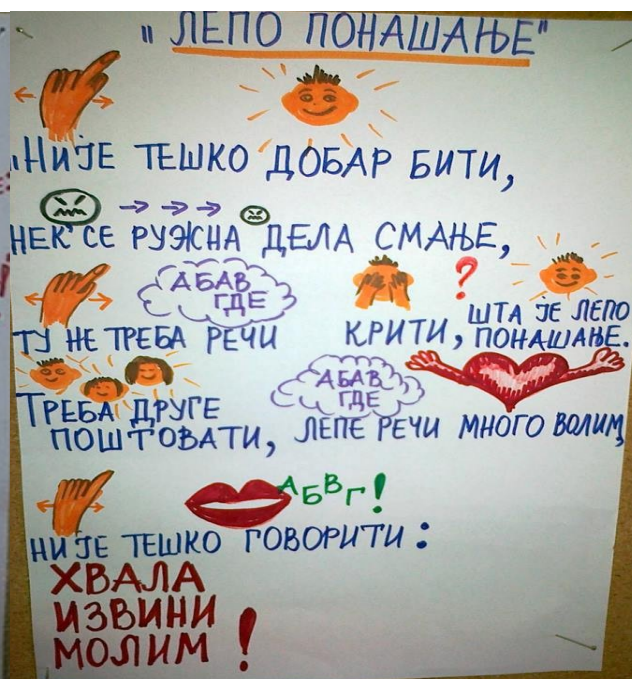 "ЛЕПО ПОНАШАЊЕ"
"НИЈЕ ТЕШКО ДОБАР БИТИ,
НЕК' СЕ РУЖНА ДЕЛА СМАЊЕ,
АБАВ
ГДЕ
?
ТУ НЕ ТРЕБА РЕЧИ КРИТИ,
ШТА ЈЕ ЛЕПО
ПОНАШАЊЕ.
АБАВ
ГДЕ
ТРЕБА ДРУГЕ
ПОШТОВАТИ, ЛЕПЕ РЕЧИ МНОГО ВОЛИМ,
АБВГ!
НИЈЕ ТЕШКО ГОВОРИТИ:
ХВАЛА
ИЗВИНИ
МОЛИМ!